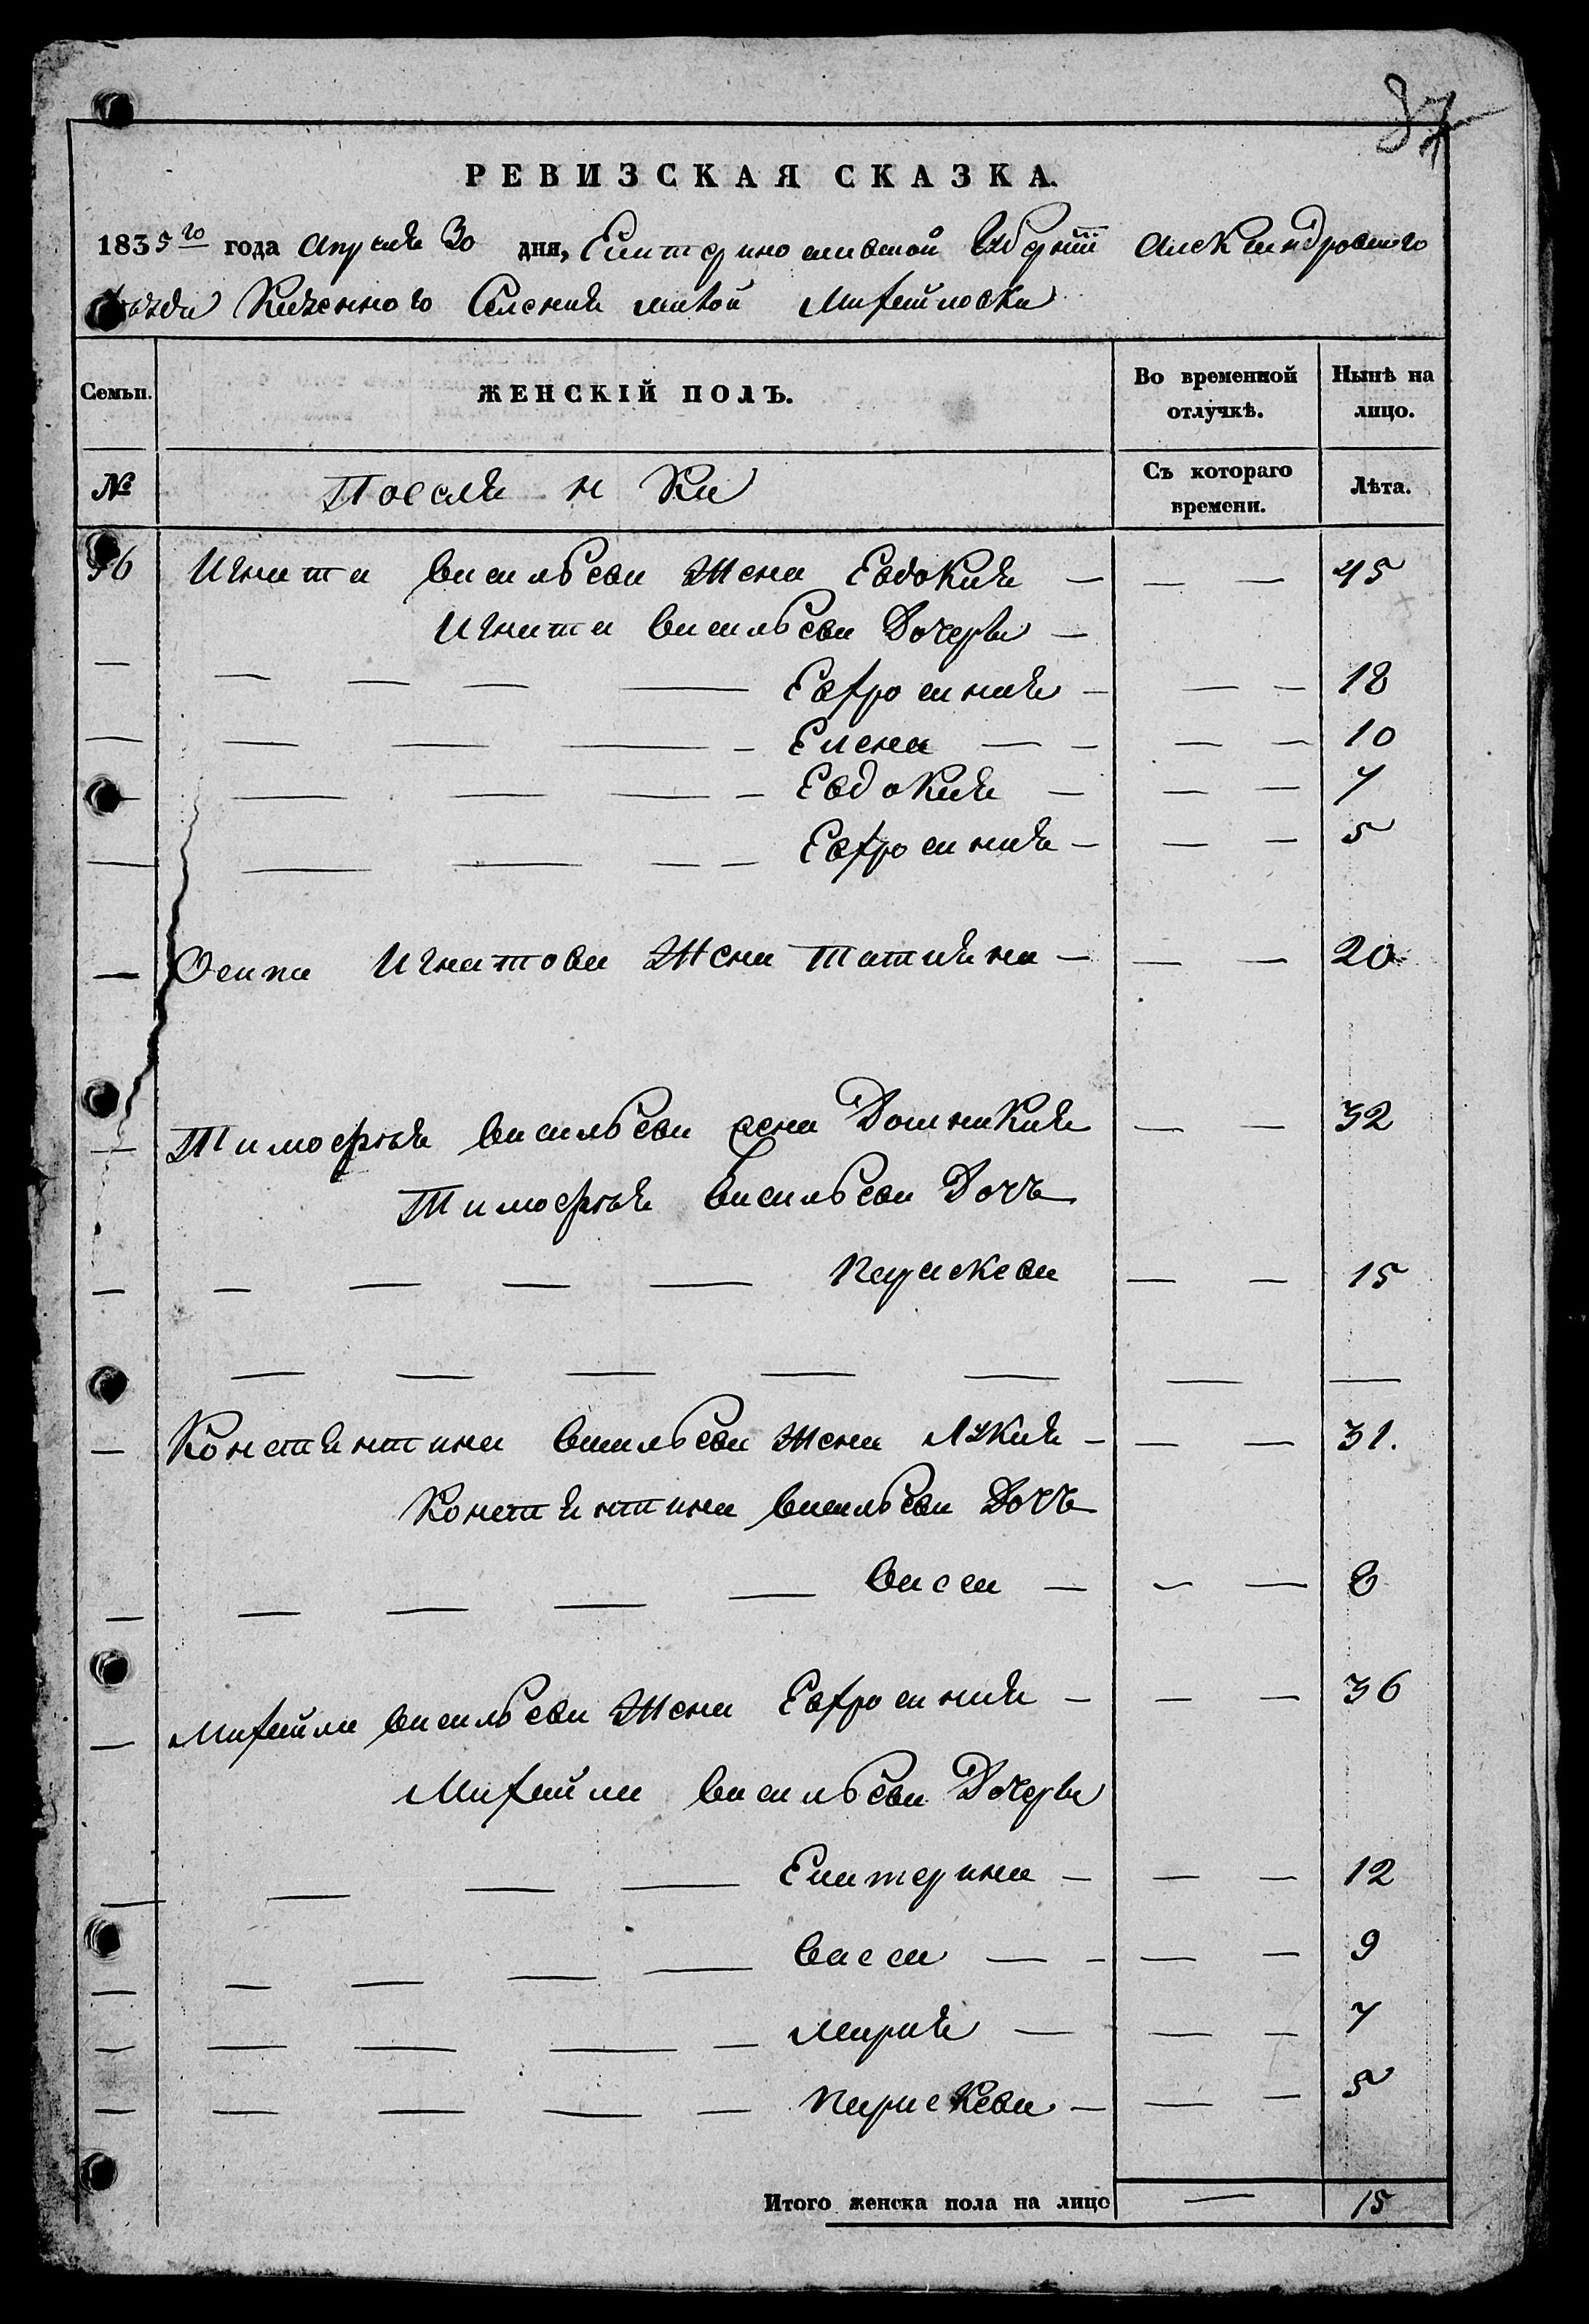 37
РЕВИЗСКАЯ СКАЗКА.
1835го года апреля 30 дня, Екатериносливской Губернiи Александровского
уѣзда Казенного Селения малой Михайловки
Семьи. ЖЕНСКІЙ ПОЛЪ. Во временной отлучкѣ. Нынѣ на лицо.
№ Поселянки Съ котораго времени. Лѣта.
56 Игната Васильева Жена Евдокия — — — 45
Игната Васильева Дочери —
— — — — — Евфросиния — — — 18
— — — — — Елена — — — — 10
— — — — — Евдокия — — — 7
— — — — — Евфросиния — — — 5
— Осипа Игнатова Жена Татияна — — — 20
— Тимофѣя Васильева жена Домникия — — 32
Тимофѣя Васильева Дочь
— — — — — Параскева — — 15
— — — — — — —
— Константина Васильева Жена Лукия — — — 31.
Константина Васильева Дочь
— — — — — Васса — — — 8
— Михайла Васильева Жена Евфросиния — — — 36
Михайла Васильева Дочери
— — — — Екатерина — — — 12
— — — — — Васса — — — — 9
— — — — — Мария — — — 7
— — — — — Параскева — — — 5
Итого женска пола на лицо — 15